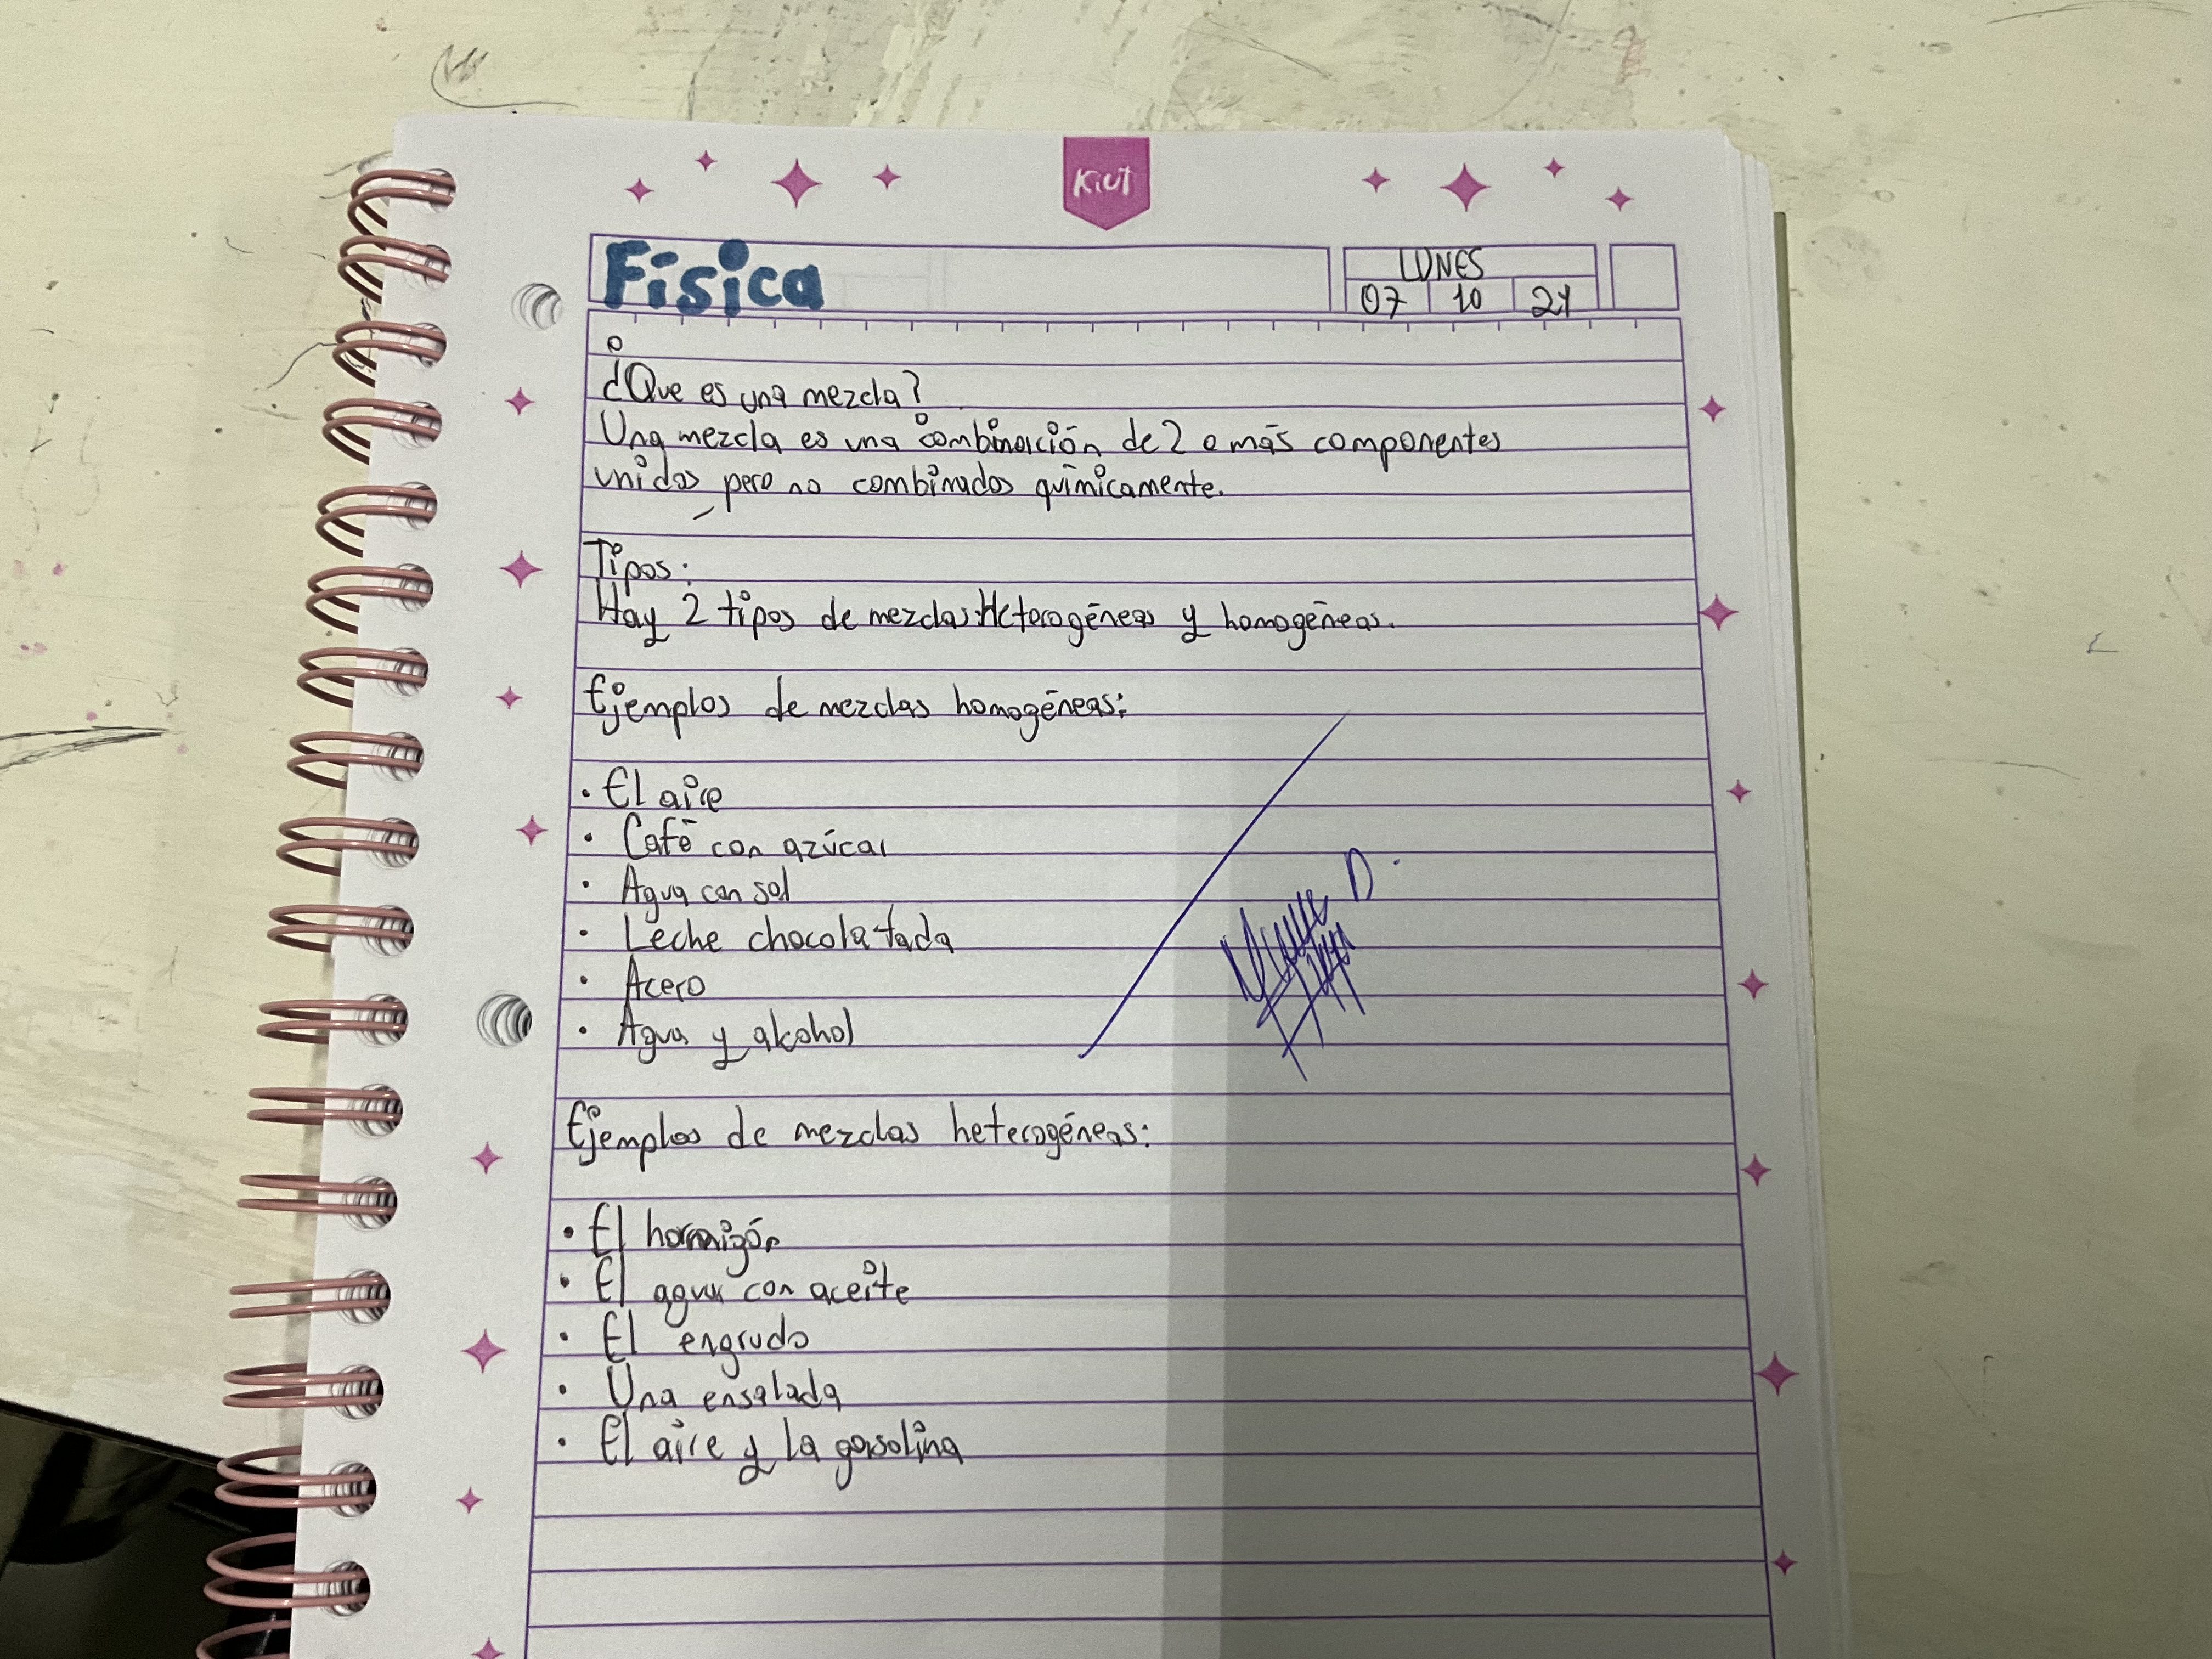 Kiut
Física
LUNES
07 10 24
¿Que es una mezcla?
Una mezcla es una combinación de 2 o más componentes
unidos pero no combinados químicamente.
Tipos:
Hay 2 tipos de mezclas: Heterogéneas y homogéneas.
Ejemplos de mezclas homogéneas:
• El aire
• Café con azúcar
• Agua con sal
• Leche chocolatada
• Acero
• Agua y alcohol
D.
Ejemplos de mezclas heterogéneas:
• El hormigón
• El agua con aceite
• El engrudo
• Una ensalada
• El aire y la gasolina